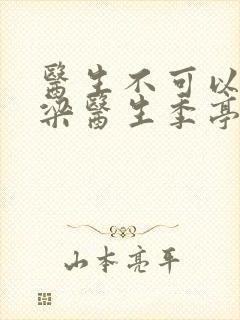 醫生不可以
梁醫生季亭
山本亮平